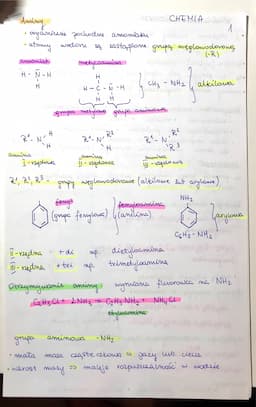 CHEMIA
1
Aminy
- organiczne pochodne amoniaku
- atomy wodoru są zastąpione grupą węglowodorową (-R)
amoniak metyloamina
H - N - H
H
H
H - C - N - H
H H
CH₃ - NH₂ } alkilowa
grupa metylowa grupa aminowa
R¹ - N - H
H
R¹ - N - R²
H
R¹ - N - R²
R³
amina I-rzędowa
amina II-rzędowa
amina III-rzędowa
R¹, R², R³ - grupy węglowodorowe (alkilowe lub arylowe)
fenyl
(grupa fenylowa)
fenyloamina
(anilina)
NH₂
C₆H₅-NH₂
arylowa
II-rzędna + di np. dietyloamina
III-rzędna + tri np. trimetyloamina
Otrzymywanie aminy wymiana fluorowca na NH₂
C₂H₅Cl + 2NH₃ → C₂H₅NH₂ + NH₄Cl
etyloamina
grupa aminowa -NH₂
- mała masa cząsteczkowa => gazy lub ciecze
- wzrost masy => maleje rozpuszczalność w wodzie